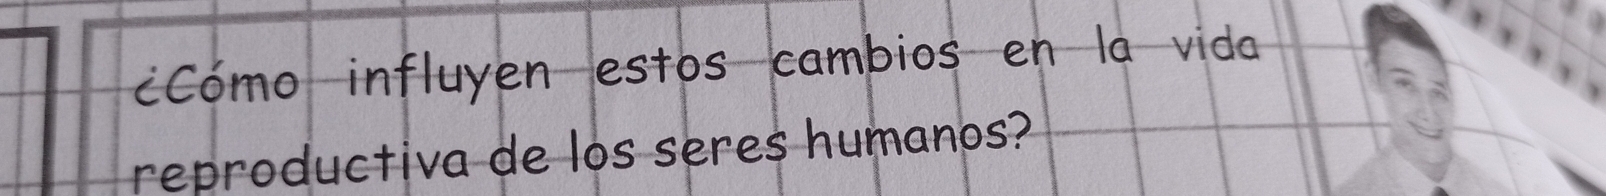 ¿Cómo influyen estos cambios en la vida
reproductiva de los seres humanos?